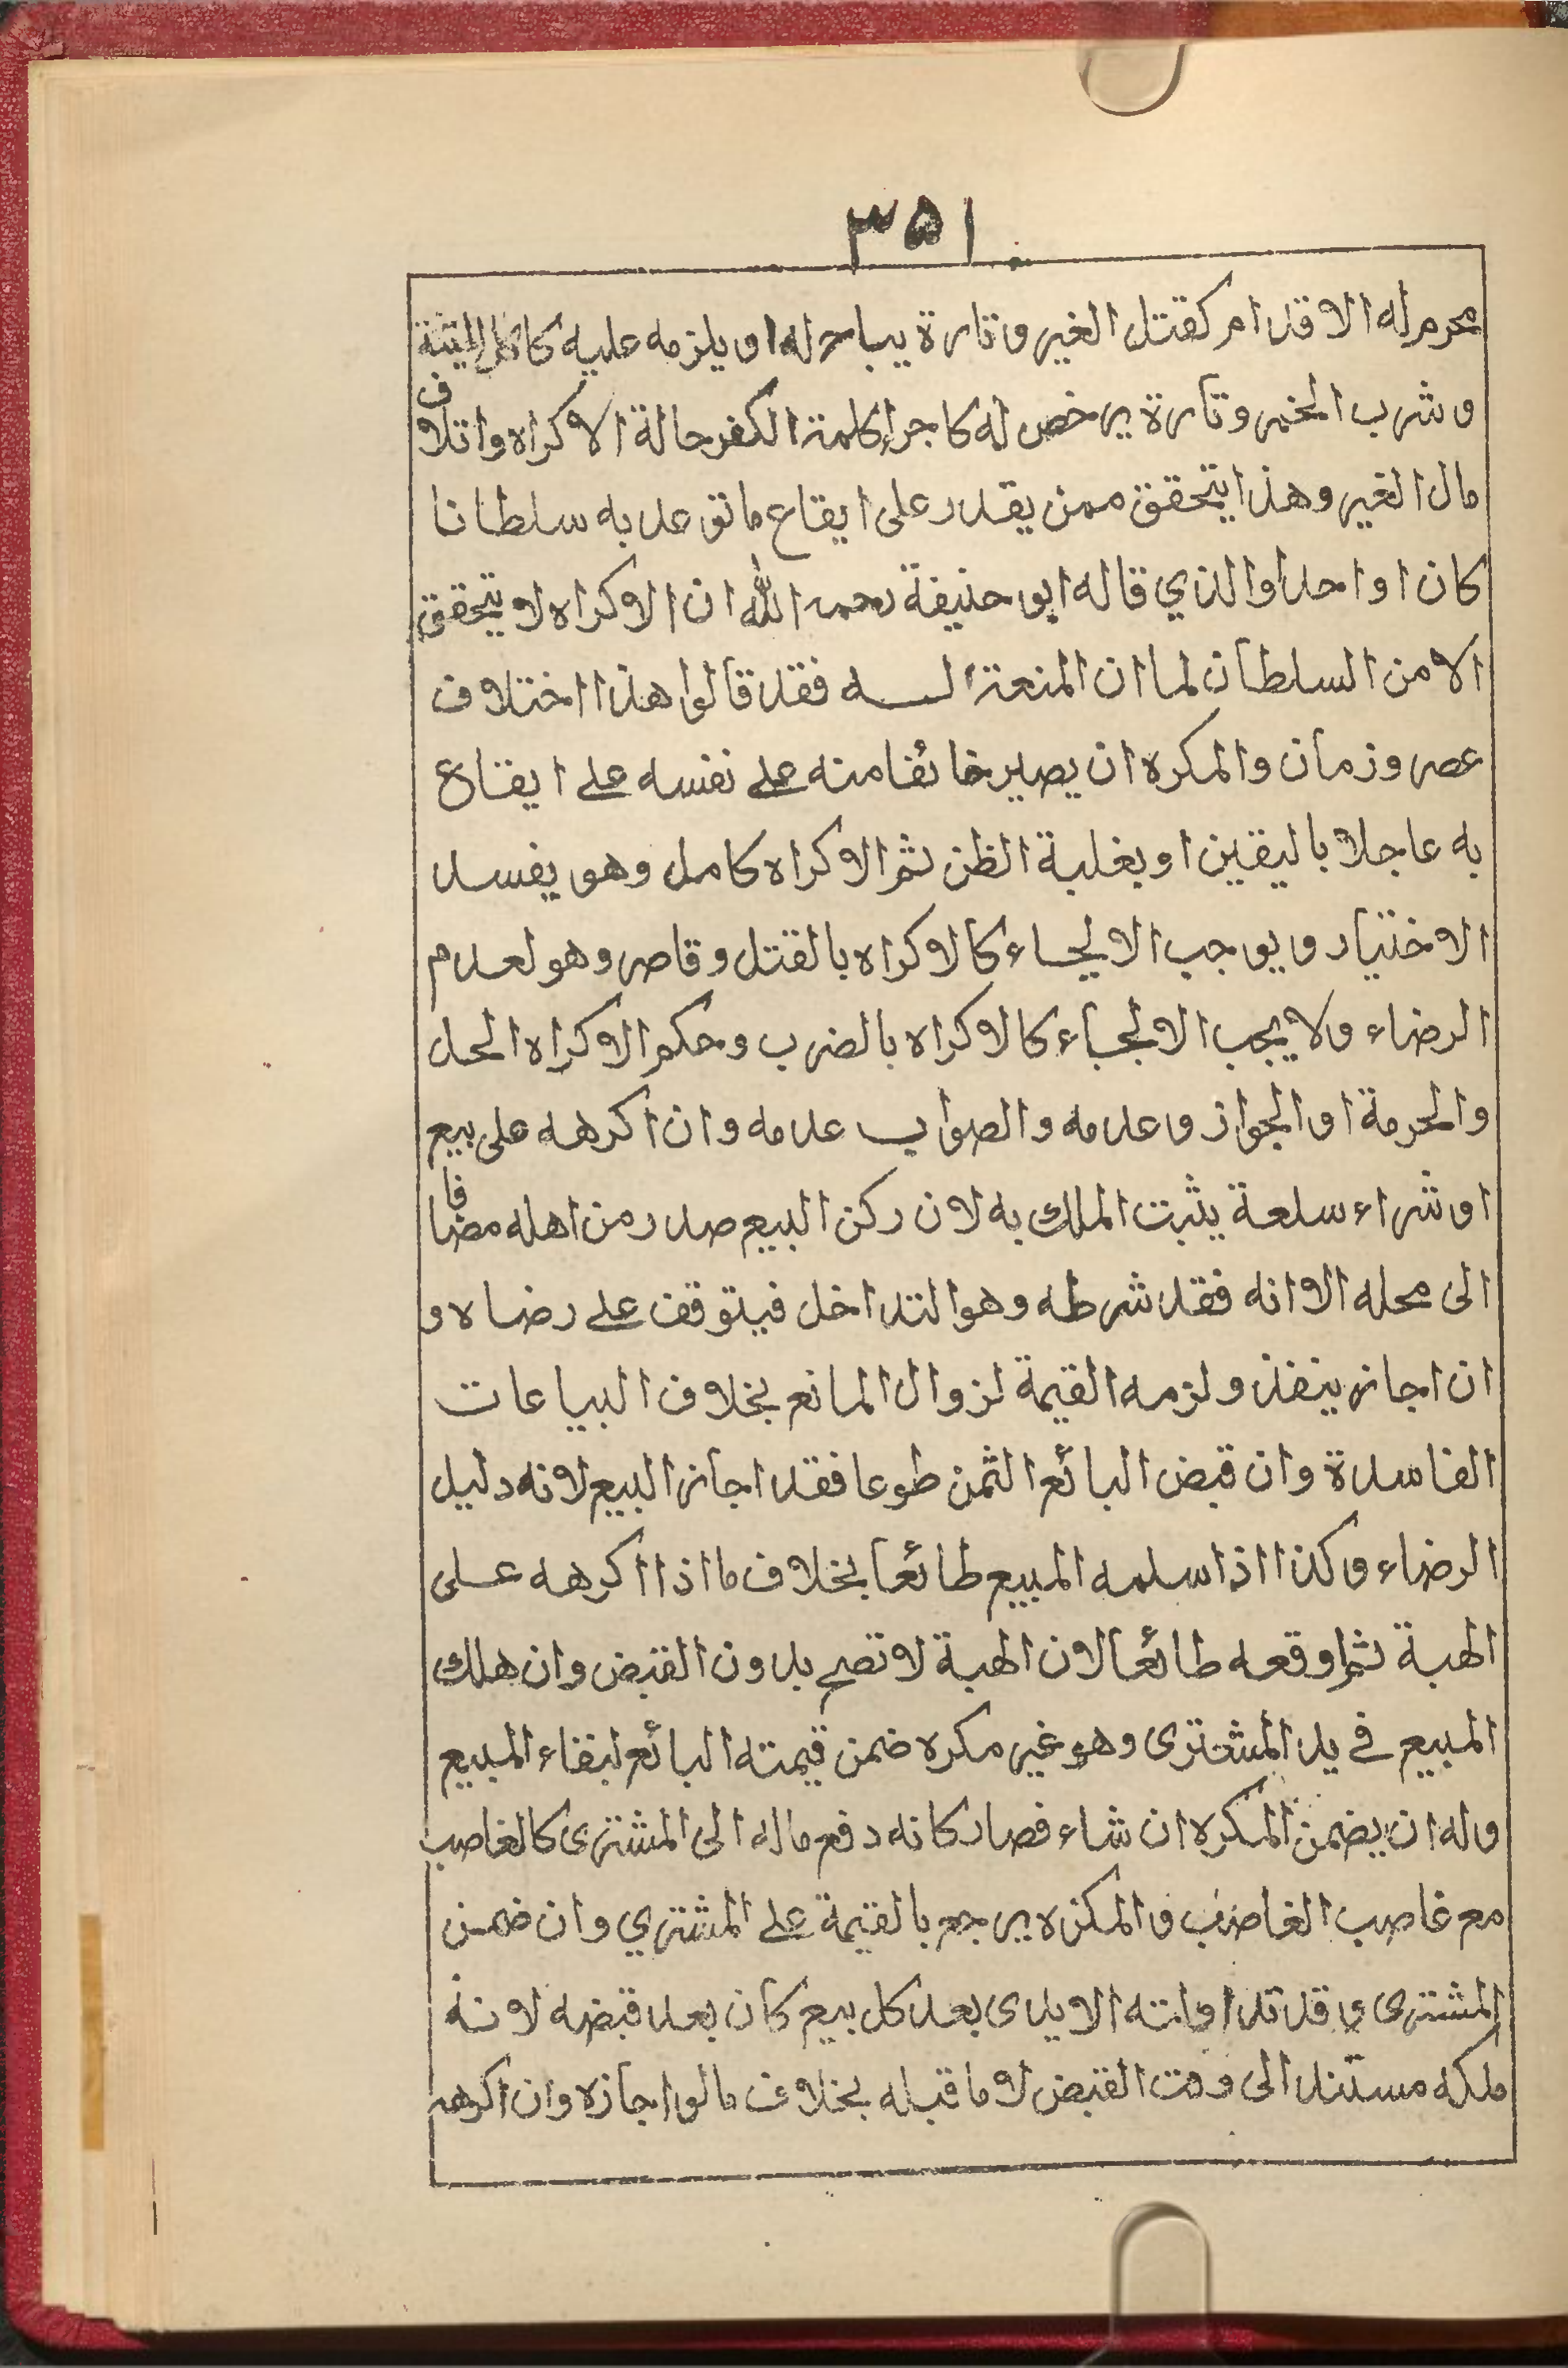 ٣٥١
محرم له الاقدام كقتل الغير وتارة يباح له او يلزمه عليه كاكل الميتة
وشرب الخمر وتارة يرخص له كاجراء كلمة الكفر حالة الاكراه واتلاف
مال الغير وهذا يتحقق ممن يقدر على ايقاع ما توعد به سلطانا
كان او احدا والذي قاله ابو حنيفة رحمه الله ان الاكراه لا يتحقق
الا من السلطان لما ان المنعة له فقد قالوا هذا اختلاف
عصر وزمان والمكره ان يصير خائفا منه على نفسه على ايقاع
به عاجلا باليقين او بغلبة الظن ثم الاكراه كامل وهو يفسد
الاختيار ويوجب الالجاء كالاكراه بالقتل وقاصر وهو لعدم
الرضاء ولا يجب الالجاء كالاكراه بالضرب وحكم الاكراه الحل
والحرمة او الجواز وعدمه والصواب عدمه وان اكرهه على بيع
او شراء سلعة يثبت الملك به لان ركن البيع صدر من اهله مضافا
الى محله الا انه فقد شرطه وهو التداخل فيتوقف على رضاه و
ان اجاز ينفذ ولزمه القيمة لزوال المانع بخلاف البياعات
الفاسدة وان قبض البائع الثمن طوعا فقد اجاز البيع لانه دليل
الرضاء وكذا اذا سلمه المبيع طائعا بخلاف ما اذا اكرهه على
الهبة ثم اوقعه طائعا لان الهبة لا تصح بدون القبض وان هلك
المبيع في يد المشترى وهو غير مكره ضمن قيمته البائع لبقاء المبيع
وله ان يضمن المكره ان شاء فصار كانه دفع ماله الى المشترى كالغاصب
مع غاصب الغاصب والمكره يرجع بالقيمة على المشتري وان ضمن
المشترى وقد تداولته الايدى بعد كل بيع كان بعد قبضه لانه
ملكه مستند الى وقت القبض لا ما قبله بخلاف ما لو اجازه وان اكرهه